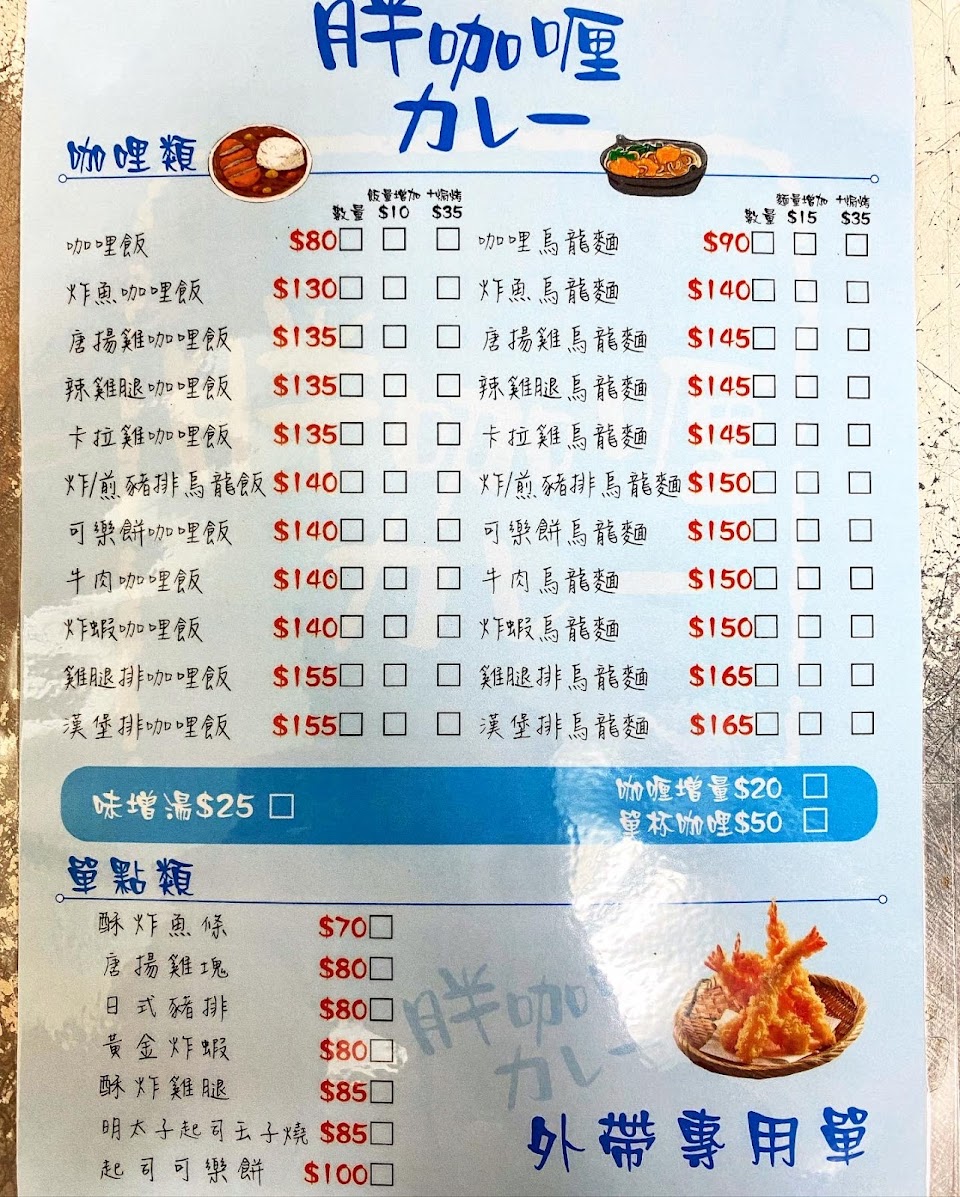 胖咖喱
カレー
咖哩類
數量 飯量增加 $10 +焗烤 $35
數量 麵量增加 $15 +焗烤 $35
咖哩飯 $80
咖哩烏龍麵 $90
炸魚咖哩飯 $130
炸魚烏龍麵 $140
唐揚雞咖哩飯 $135
唐揚雞烏龍麵 $145
辣雞腿咖哩飯 $135
辣雞腿烏龍麵 $145
卡拉雞咖哩飯 $135
卡拉雞烏龍麵 $145
炸/煎豬排烏龍飯 $140
炸/煎豬排烏龍麵 $150
可樂餅咖哩飯 $140
可樂餅烏龍麵 $150
牛肉咖哩飯 $140
牛肉烏龍麵 $150
炸蝦咖哩飯 $140
炸蝦烏龍麵 $150
雞腿排咖哩飯 $155
雞腿排烏龍麵 $165
漢堡排咖哩飯 $155
漢堡排烏龍麵 $165
味增湯$25
咖喱增量$20
單杯咖哩$50
單點類
酥炸魚條 $70
唐揚雞塊 $80
日式豬排 $80
黃金炸蝦 $80
酥炸雞腿 $85
明太子起司玉子燒 $85
起司可樂餅 $100
胖咖
カレー
外帶專用單